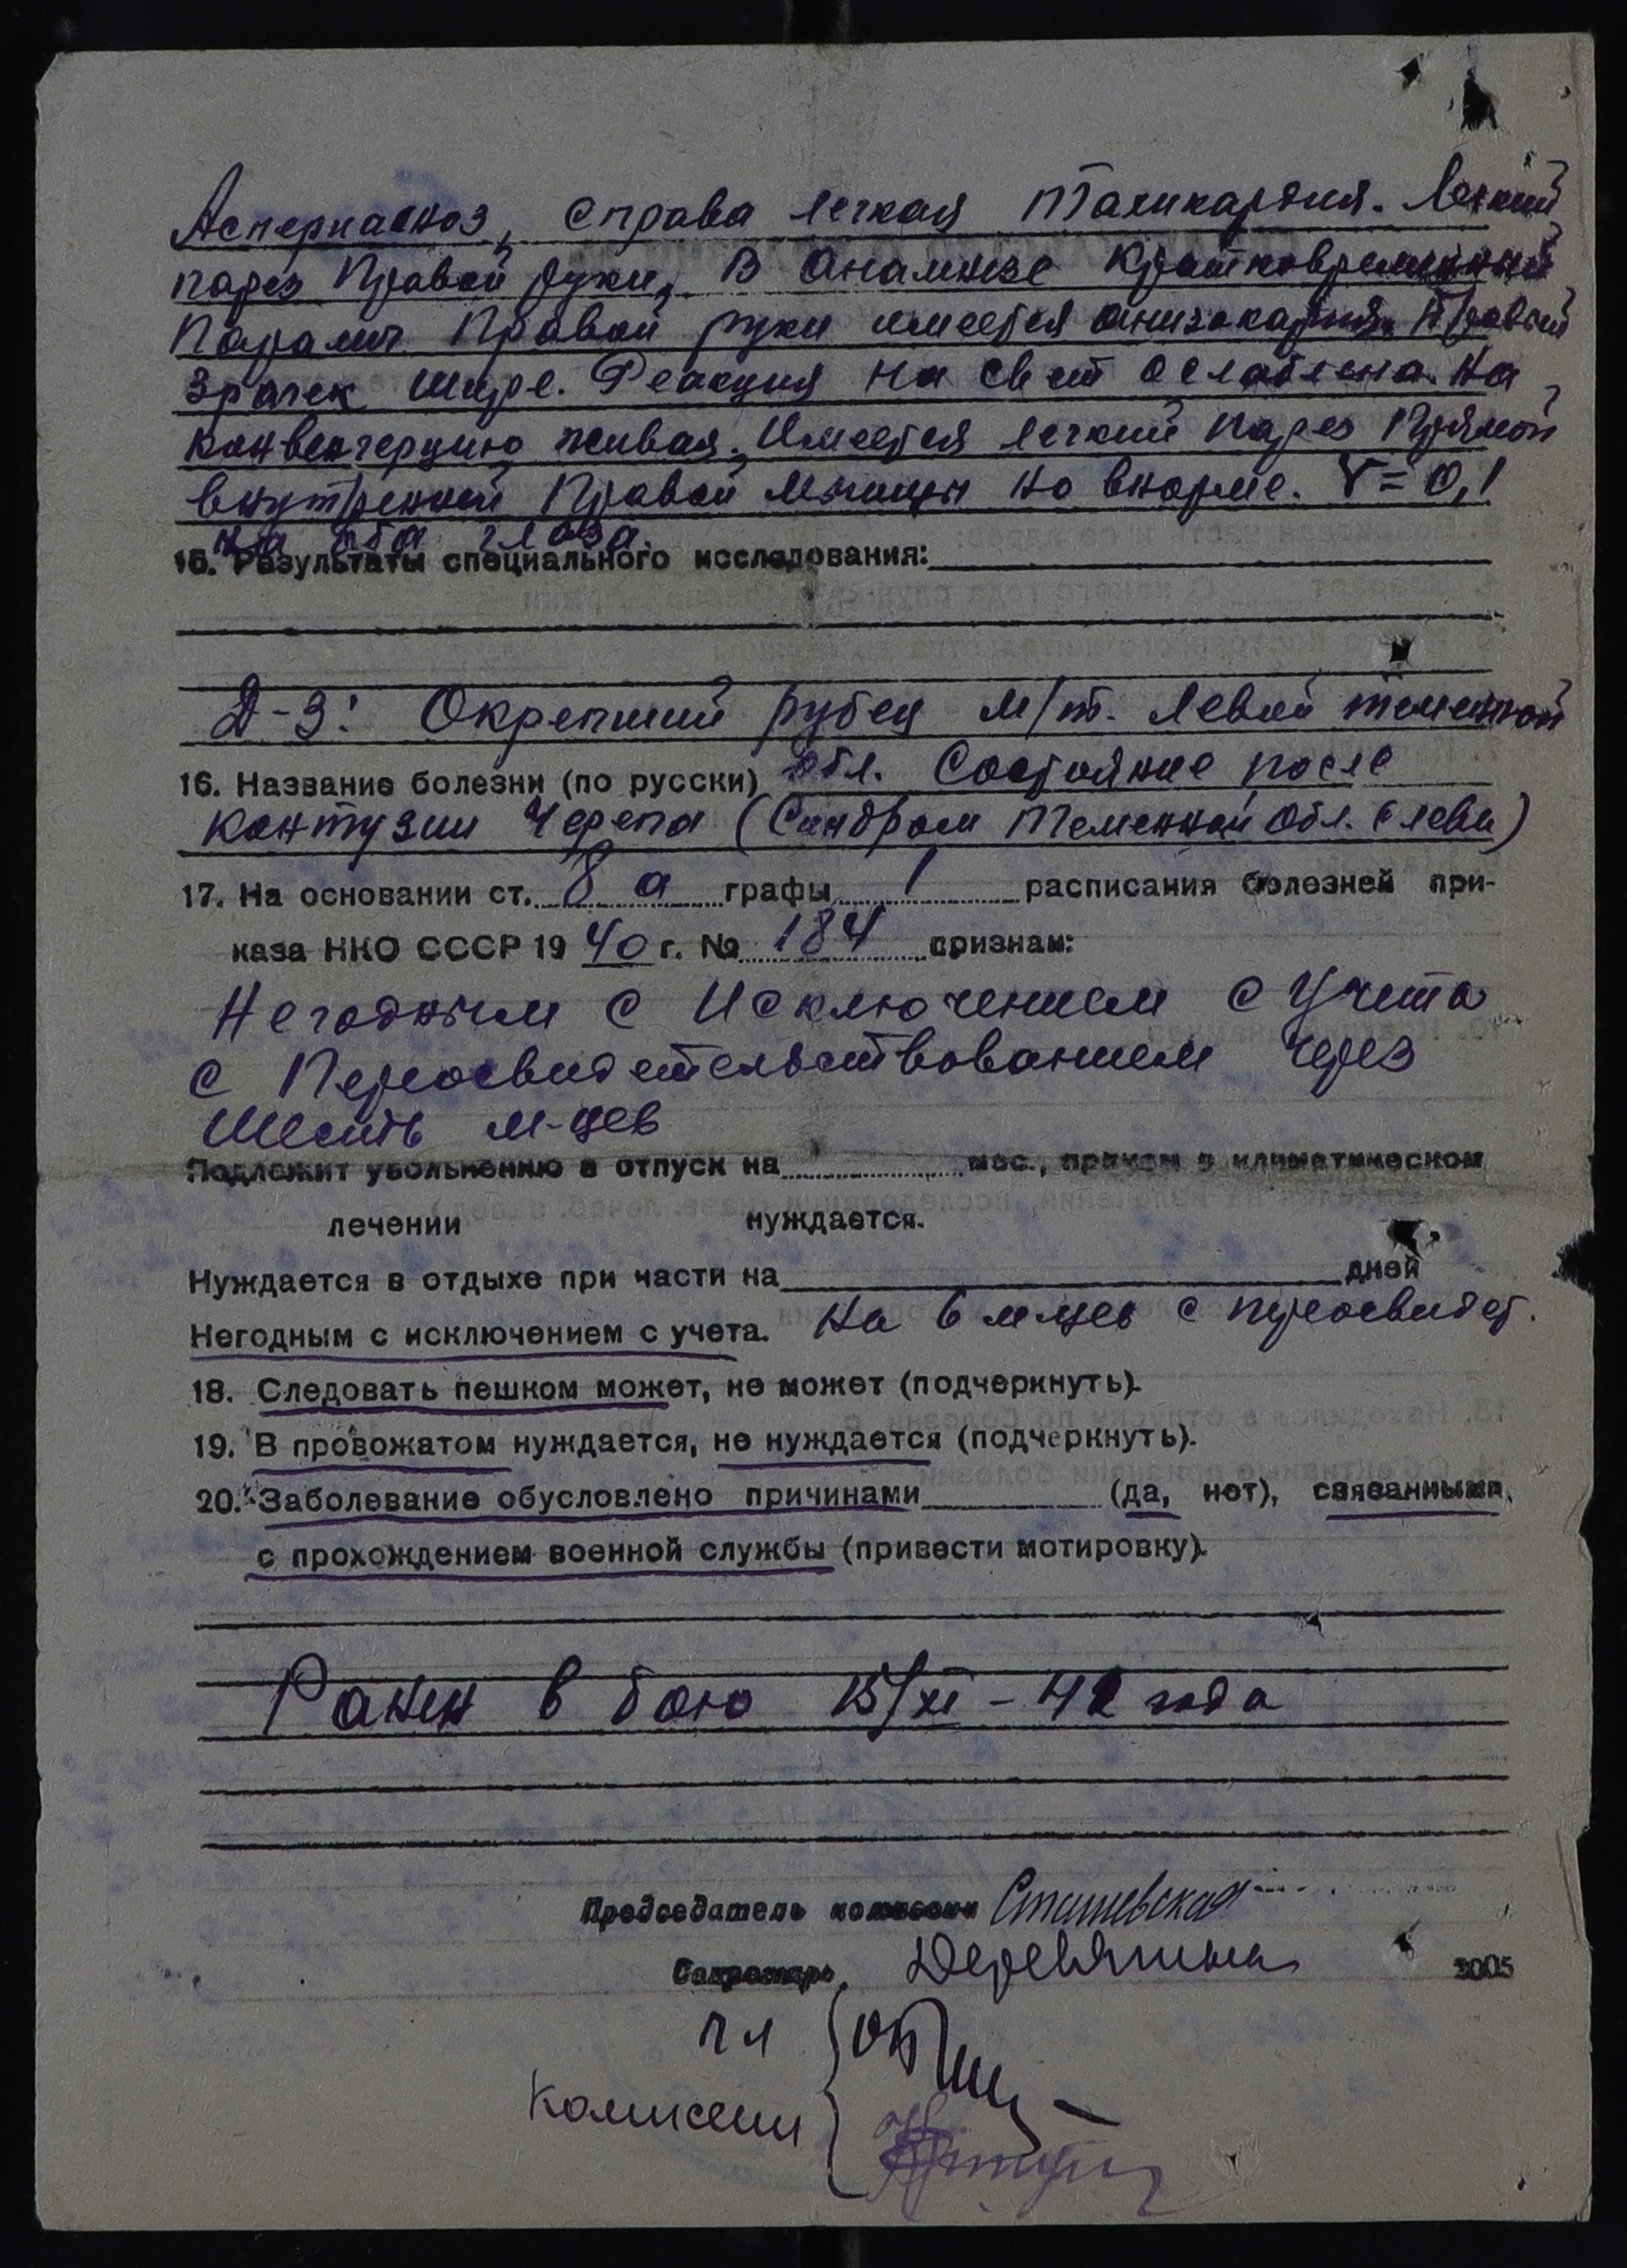 Аспернаоноз, справа легкая Таликардия. Легкий
парез Правой руки, В Анамнезе Кратковременный
Паралич Правой руки имеется анизокария. Правый
Зрачек шире. Реакция на свет ослаблена. На
конвенгерцию живая. Имеется легкий парез Прямой
внутренней Правой мышцы но внорме. V=0,1
на оба глаза.
15. Результаты специального исследования:
Д-з: Окрепший рубец м/т. левой теменной
16. Название болезни (по русски) обл. Состояние после
контузии Черепа (Синдром Теменной Обл. слева)
17. На основании ст. 8 а графы 1 расписания болезней при-
каза НКО СССР 19 40 г. № 184 признан:
Негодным с Исключением с Учета
с Переосвидетельствованием через
Шесть м-цев
Подлежит увольнению в отпуск на мес., причем в климатическом
лечении нуждается.
Нуждается в отдыхе при части на дней
Негодным с исключением с учета. На 6 м-цев с переосвидет.
18. Следовать пешком может, не может (подчеркнуть).
19. В провожатом нуждается, не нуждается (подчеркнуть).
20. Заболевание обусловлено причинами (да, нет), связанными,
с прохождением военной службы (привести мотировку).
Ранен в бою 15/XI-42 года
Председатель комиссии Сташевская
Секретарь
3005
Чл
Комиссии